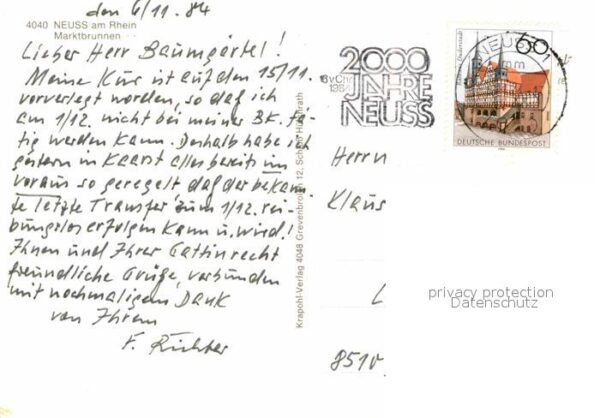 den 6/11. 84
4040 NEUSS am Rhein
Marktbrunnen
Lieber Herr Baumgärtel!
Meine Kur ist auf den 15/11.
vorverlegt worden, so daß ich
am 1/12. nicht bei meiner BK. tä-
tig werden kann. Deshalb habe ich
gestern in Kaarst alles bereits im
voraus so geregelt daß der bekann-
te letzte Transfer zum 1/12. rei-
bungslos erfolgen kann u. wird!
Ihnen und Ihrer Gattin recht
freundliche Grüße, verbunden
mit nochmaligem Dank
von Ihrem
F. Richter
Krapohl-Verlag 4048 Grevenbroich 12, Schloß Hülchrath
2000
JAHRE
NEUSS
16 v Chr
NEUSS
60
mm
DEUTSCHE BUNDESPOST
Herrn
Klaus
L
8510
privacy protection
Datenschutz